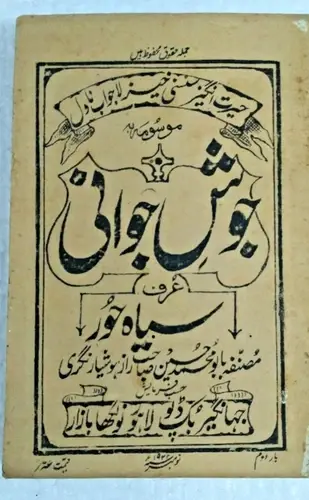 جملہ حقوق محفوظ ہیں
حیرت انگیز سنسنی خیز لاجواب ناول
موسومہ بہ
جوشِ جوانی
عرف
سیاہ حور
مصنفہ بابو محمد حسین صاحب راز ہوشیار نگری
حسب فرمایش
جہانگیر بک ڈپو لاہور نولکھا بازار
بار دوم
قیمت